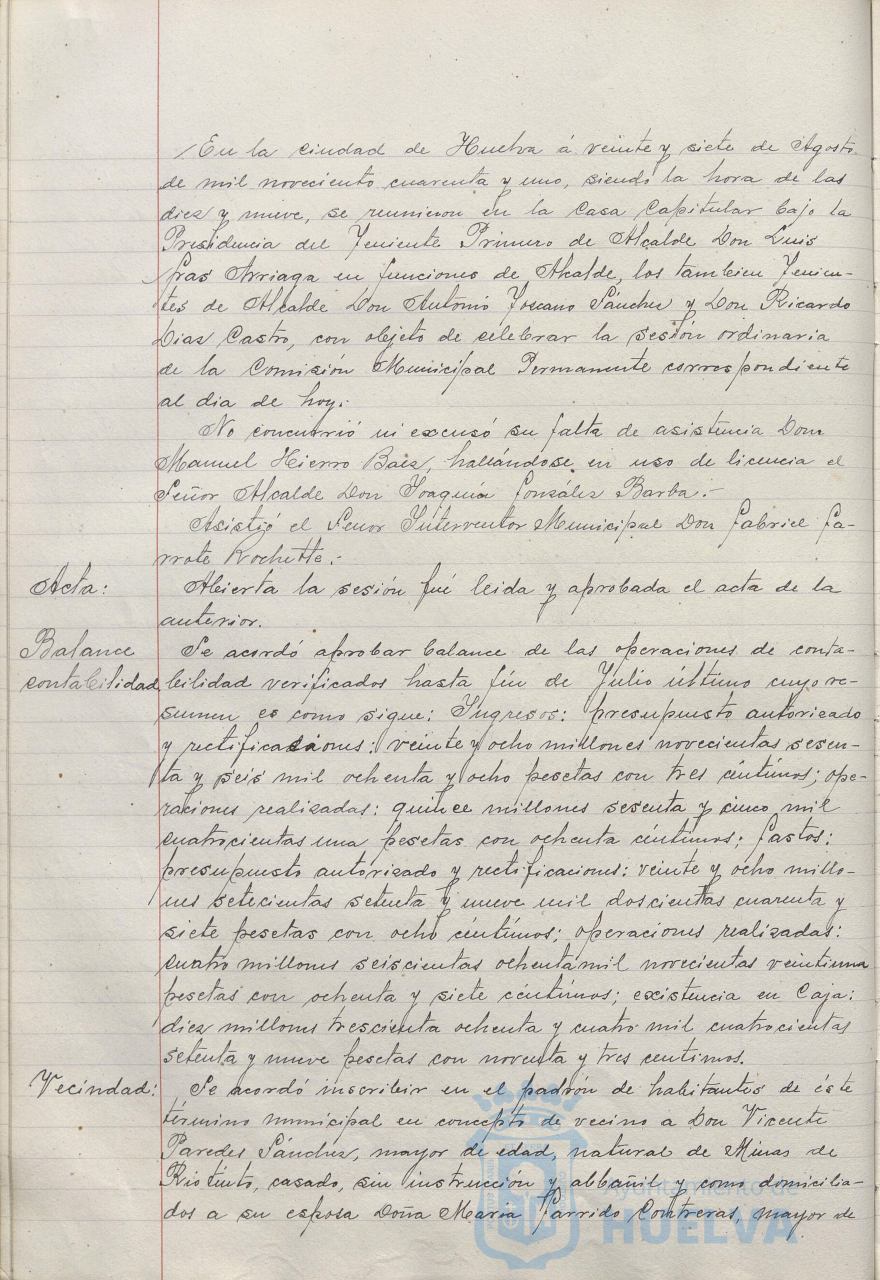 En la ciudad de Huelva á veinte y siete de Agosto
de mil noveciento cuarenta y uno, siendo la hora de las
diez y nueve, se reunieron en la Casa Capitular bajo la
Presidencia del Teniente Primero de Alcalde Don Luis
Gras Arriaga en funciones de Alcalde, los tambien Tenien-
tes de Alcalde Don Antonio Toscano Sánchez y Don Ricardo
Dias Castro, con objeto de celebrar la sesión ordinaria
de la Comisión Municipal Permanente correspondiente
al dia de hoy.-
No concurrió ni excusó su falta de asistencia Don
Manuel Hierro Baez, hallándose en uso de licencia el
Señor Alcalde Don Joaquín González Barba.-
Asistió el Señor Interventor Municipal Don Gabriel Ga-
rrote Rochette.-
Acta: Abierta la sesión fué leida y aprobada el acta de la
anterior.
Balance Se acordó aprobar balance de las operaciones de conta-
contabilidad bilidad verificados hasta fín de Julio último cuyo re-
sumen es como sigue: Ingresos: presupuesto autorizado
y rectificaciones: veinte y ocho millones novecientas sesen-
ta y seis mil ochenta y ocho pesetas con tres céntimos; ope-
raciones realizadas: quince millones sesenta y cinco mil
cuatrocientas una pesetas con ochenta céntimos; Gastos:
presupuesto autorizado y rectificaciones: veinte y ocho millo-
nes setecientas setenta y nueve mil doscientas cuarenta y
siete pesetas con ocho céntimos; operaciones realizadas:
cuatro millones seiscientas ochenta mil novecientas veintiuna
pesetas con ochenta y siete céntimos; existencia en Caja:
diez millones trescienta ochenta y cuatro mil cuatrocientas
setenta y nueve pesetas con noventa y tres centimos.
Vecindad: Se acordó inscribir en el padrón de habitantes de éste
término municipal en concepto de vecino a Don Vicente
Paredes Sánchez, mayor de edad, natural de Minas de
Riotinto, casado, sin instrucción y albañil y como domicilia-
dos a su esposa Doña María Garrido Contreras, mayor de
Ayuntamiento de
HUELVA